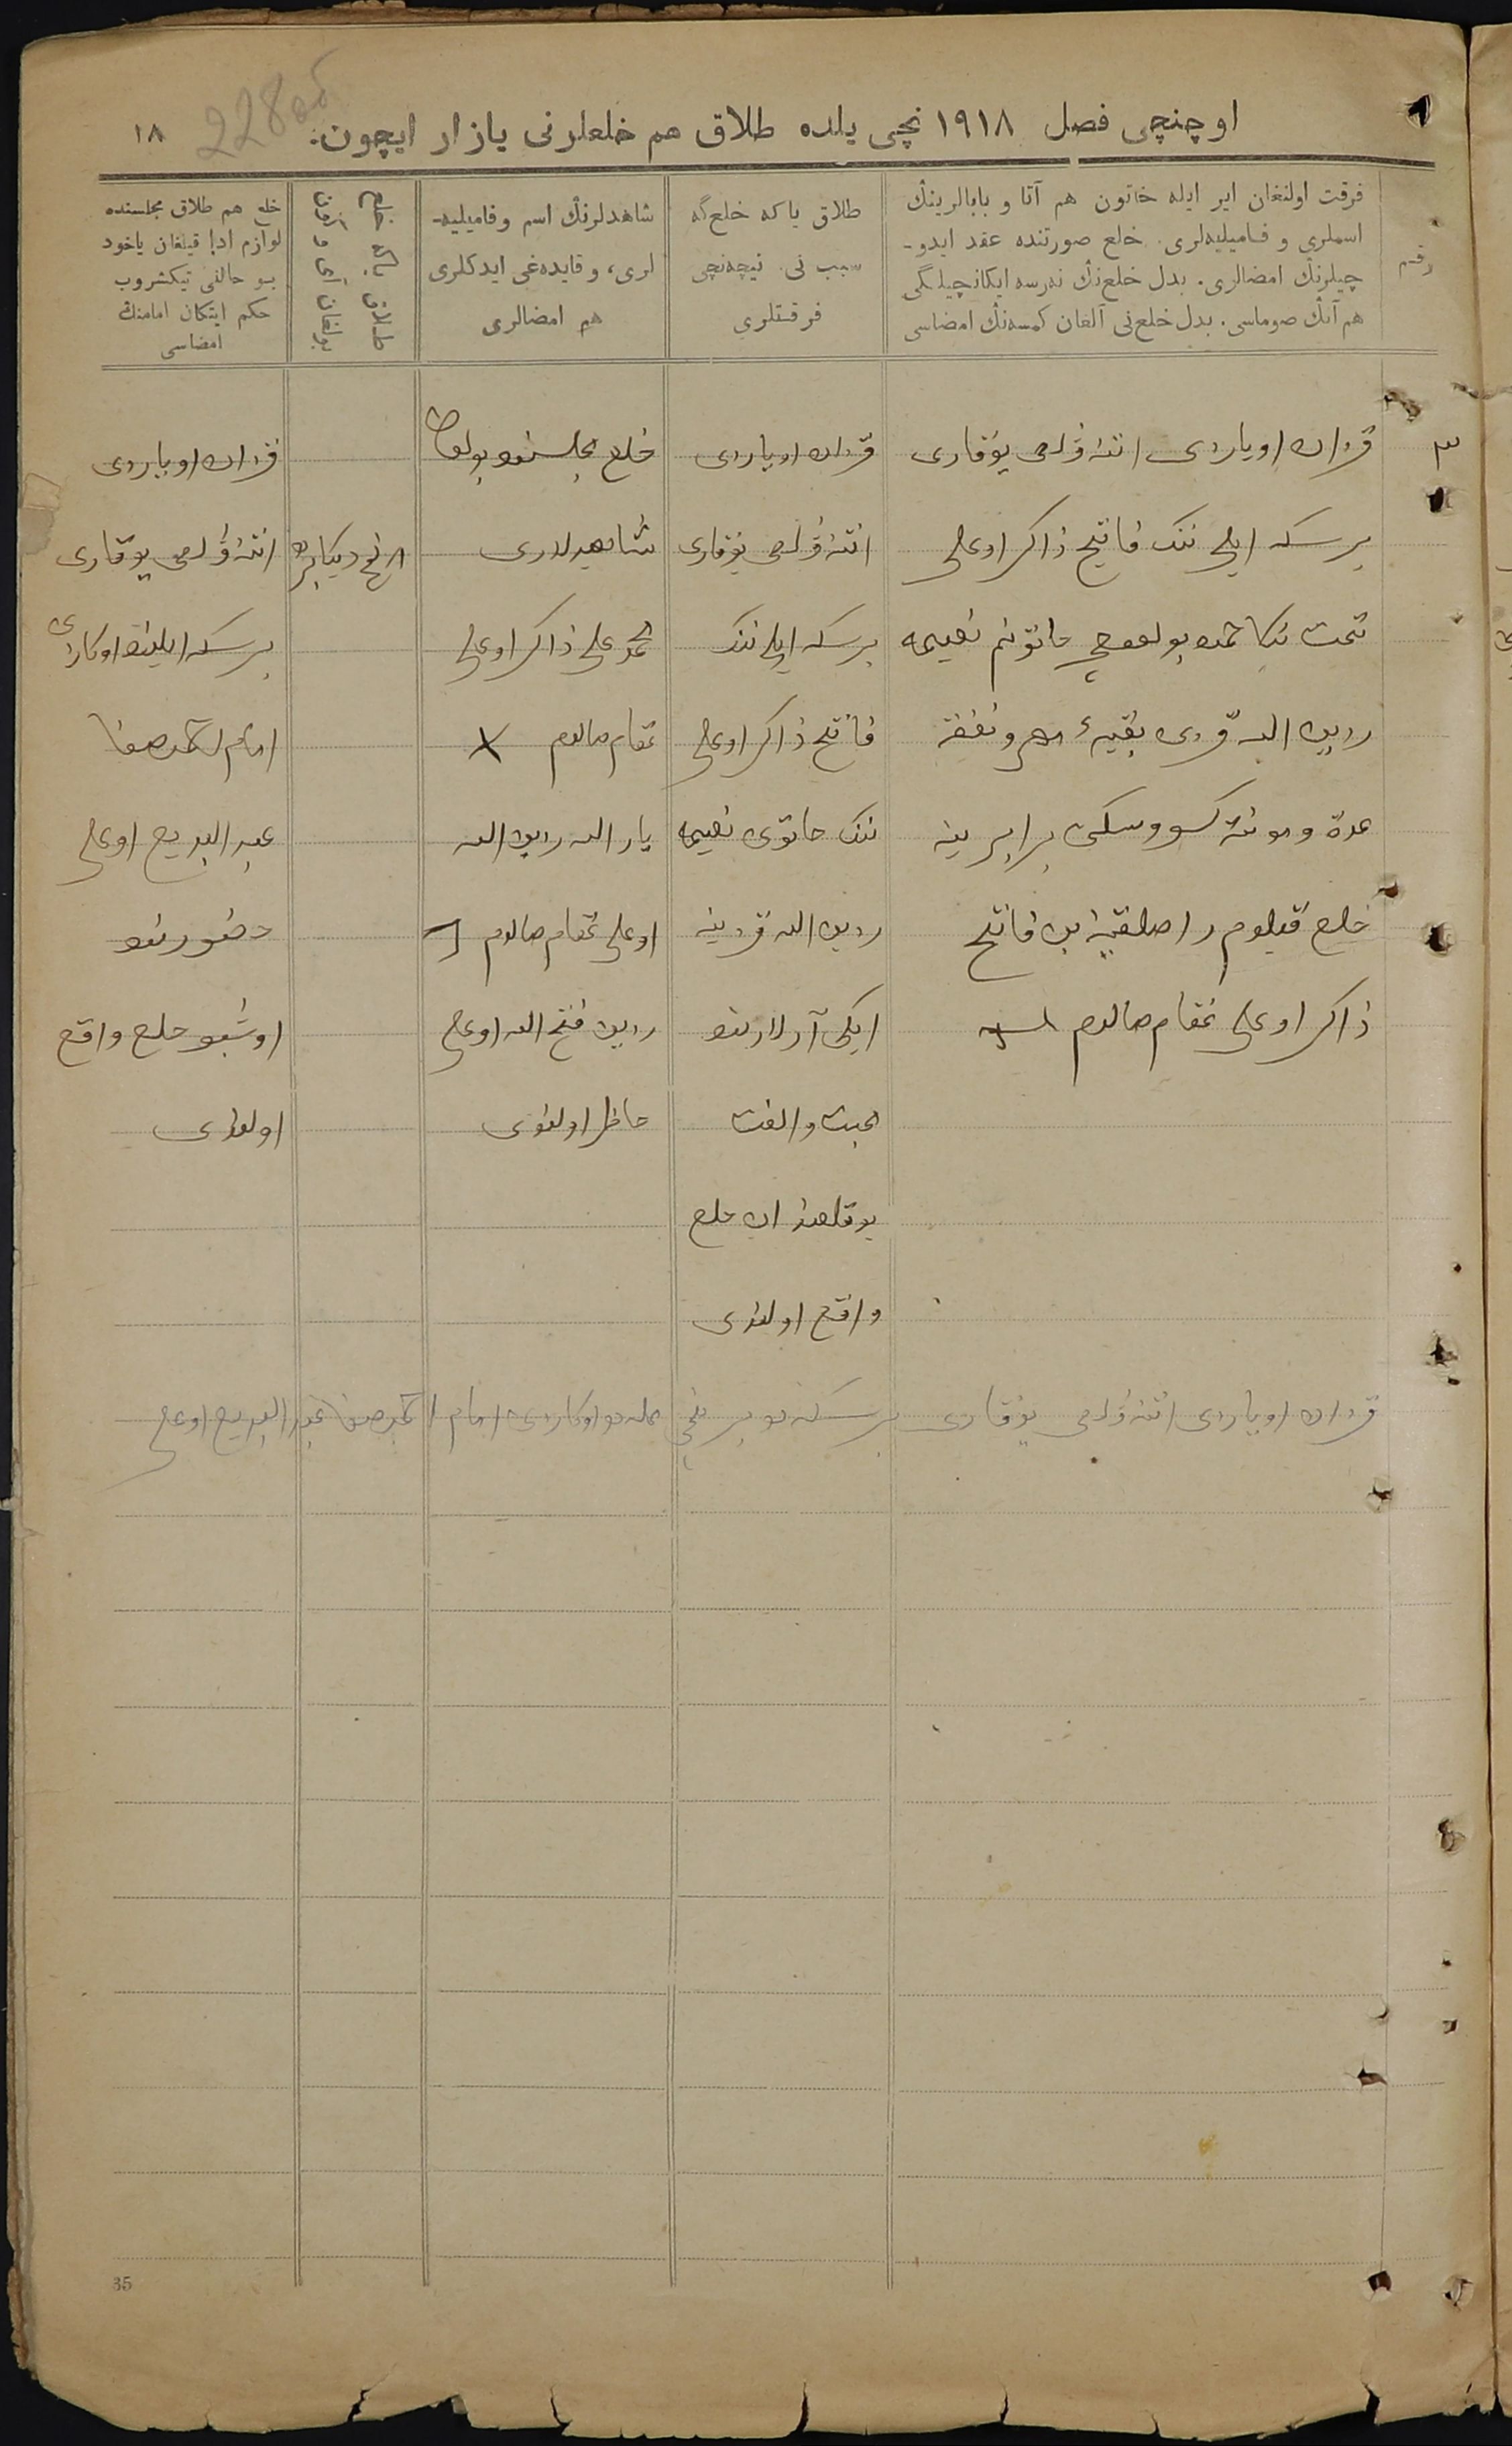 228об
اوچنچی فصل ١٩١٨ نچی یلده طلاق هم خلعلرنی یازار ایچون.
١٨
رقم
فرقت اولنغان ایر ایله خاتون هم آتا و بابالرینڭ
اسملری و فامیلیه‌لری. خلع صورتنده عقد ایدو-
چیلرنڭ امضالری. بدل خلع‌نڭ نه‌رسه ایکانچیلگی
هم آنڭ صوماسی. بدل خلع‌نی آلغان کمسه‌نڭ امضاسی
طلاق یا که خلع‌گه
سبب نی. نیچه‌نچی
فرقتلری
شاهدلرنڭ اسم و فامیلیه-
لری، و قایده‌غی ایدکلری
هم امضالری
طلاق یا که خلع
بولغان آی و کون
خلع هم طلاق مجلسنده
لوازم ادا قیلغان یاخود
بو حالنی تیکشروب
حکم ایتکان امامنڭ
امضاسی
٣
قزان اویازی اتنه وُلصی یوقاری
برسکه ایلی ننک فاتیح ذاکر اوغلی
تحت نکاحمده بولغوچی خاتونم نعیمه
الله قزی بقیهٔ مهر و نفقهٔ
عدة و مونة سکنی برابرینه
خلع قیلوم راصلقیمه بن فاتح
ذاکر اوغلی تمغام صالدم
قزان اویازی
اتنه وُلصی یوقاری
برسکه ایلی ننک
فاتح ذاکر اوغلی
ننک خاتونی نعیمه
الله قزینه
ایکی آرالارنده
محبت و الفت
یوقلغندان خلع
واقع اولندی
خلع مجلسنده بولغان
شاهدلاری
محمد علی ذاکر اوغلی
تمغام صالدم X
یار الله الله
اوغلی تمغام صالدم
فتح الله اوغلی
حاظر اولندی
دیکابرده
قزان اویازی
اتنه وُلصی یوقاری
برسکه ایلینڭ اوکازنی
امام احمد صفا
عبد البدیع اوغلی
حضورنده
اوشبو خلع واقع
اولندی
قزان اویازی اتنه وُلصی یوقاری برسکه‌ده برنچی محله‌ده اوکازنی امام احمد صفا عبد البدیع اوغلی
35